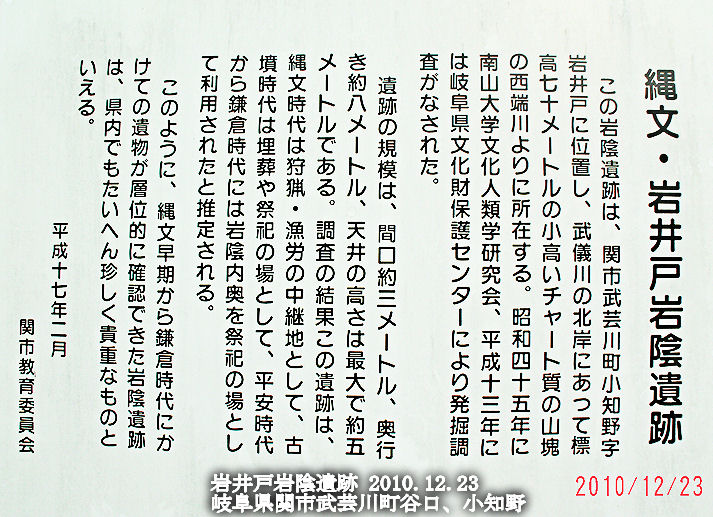 縄文・岩井戸岩陰遺跡
この岩陰遺跡は、関市武芸川町小知野字
岩井戸に位置し、武儀川の北岸にあって標
高七十メートルの小高いチャート質の山塊
の西端川よりに所在する。昭和四十五年に
南山大学文化人類学研究会、平成十三年に
は岐阜県文化財保護センターにより発掘調
査がなされた。
遺跡の規模は、間口約三メートル、奥行
き約八メートル、天井の高さは最大で約五
メートルである。調査の結果この遺跡は、
縄文時代は狩猟・漁労の中継地として、古
墳時代は埋葬や祭祀の場として、平安時代
から鎌倉時代には岩陰内奥を祭祀の場とし
て利用されたと推定される。
このように、縄文早期から鎌倉時代にか
けての遺物が層位的に確認できた岩陰遺跡
は、県内でもたいへん珍しく貴重なものと
いえる。
平成十七年二月
関市教育委員会
岩井戸岩陰遺跡 2010.12.23
岐阜県関市武芸川町谷口、小知野
2010/12/23